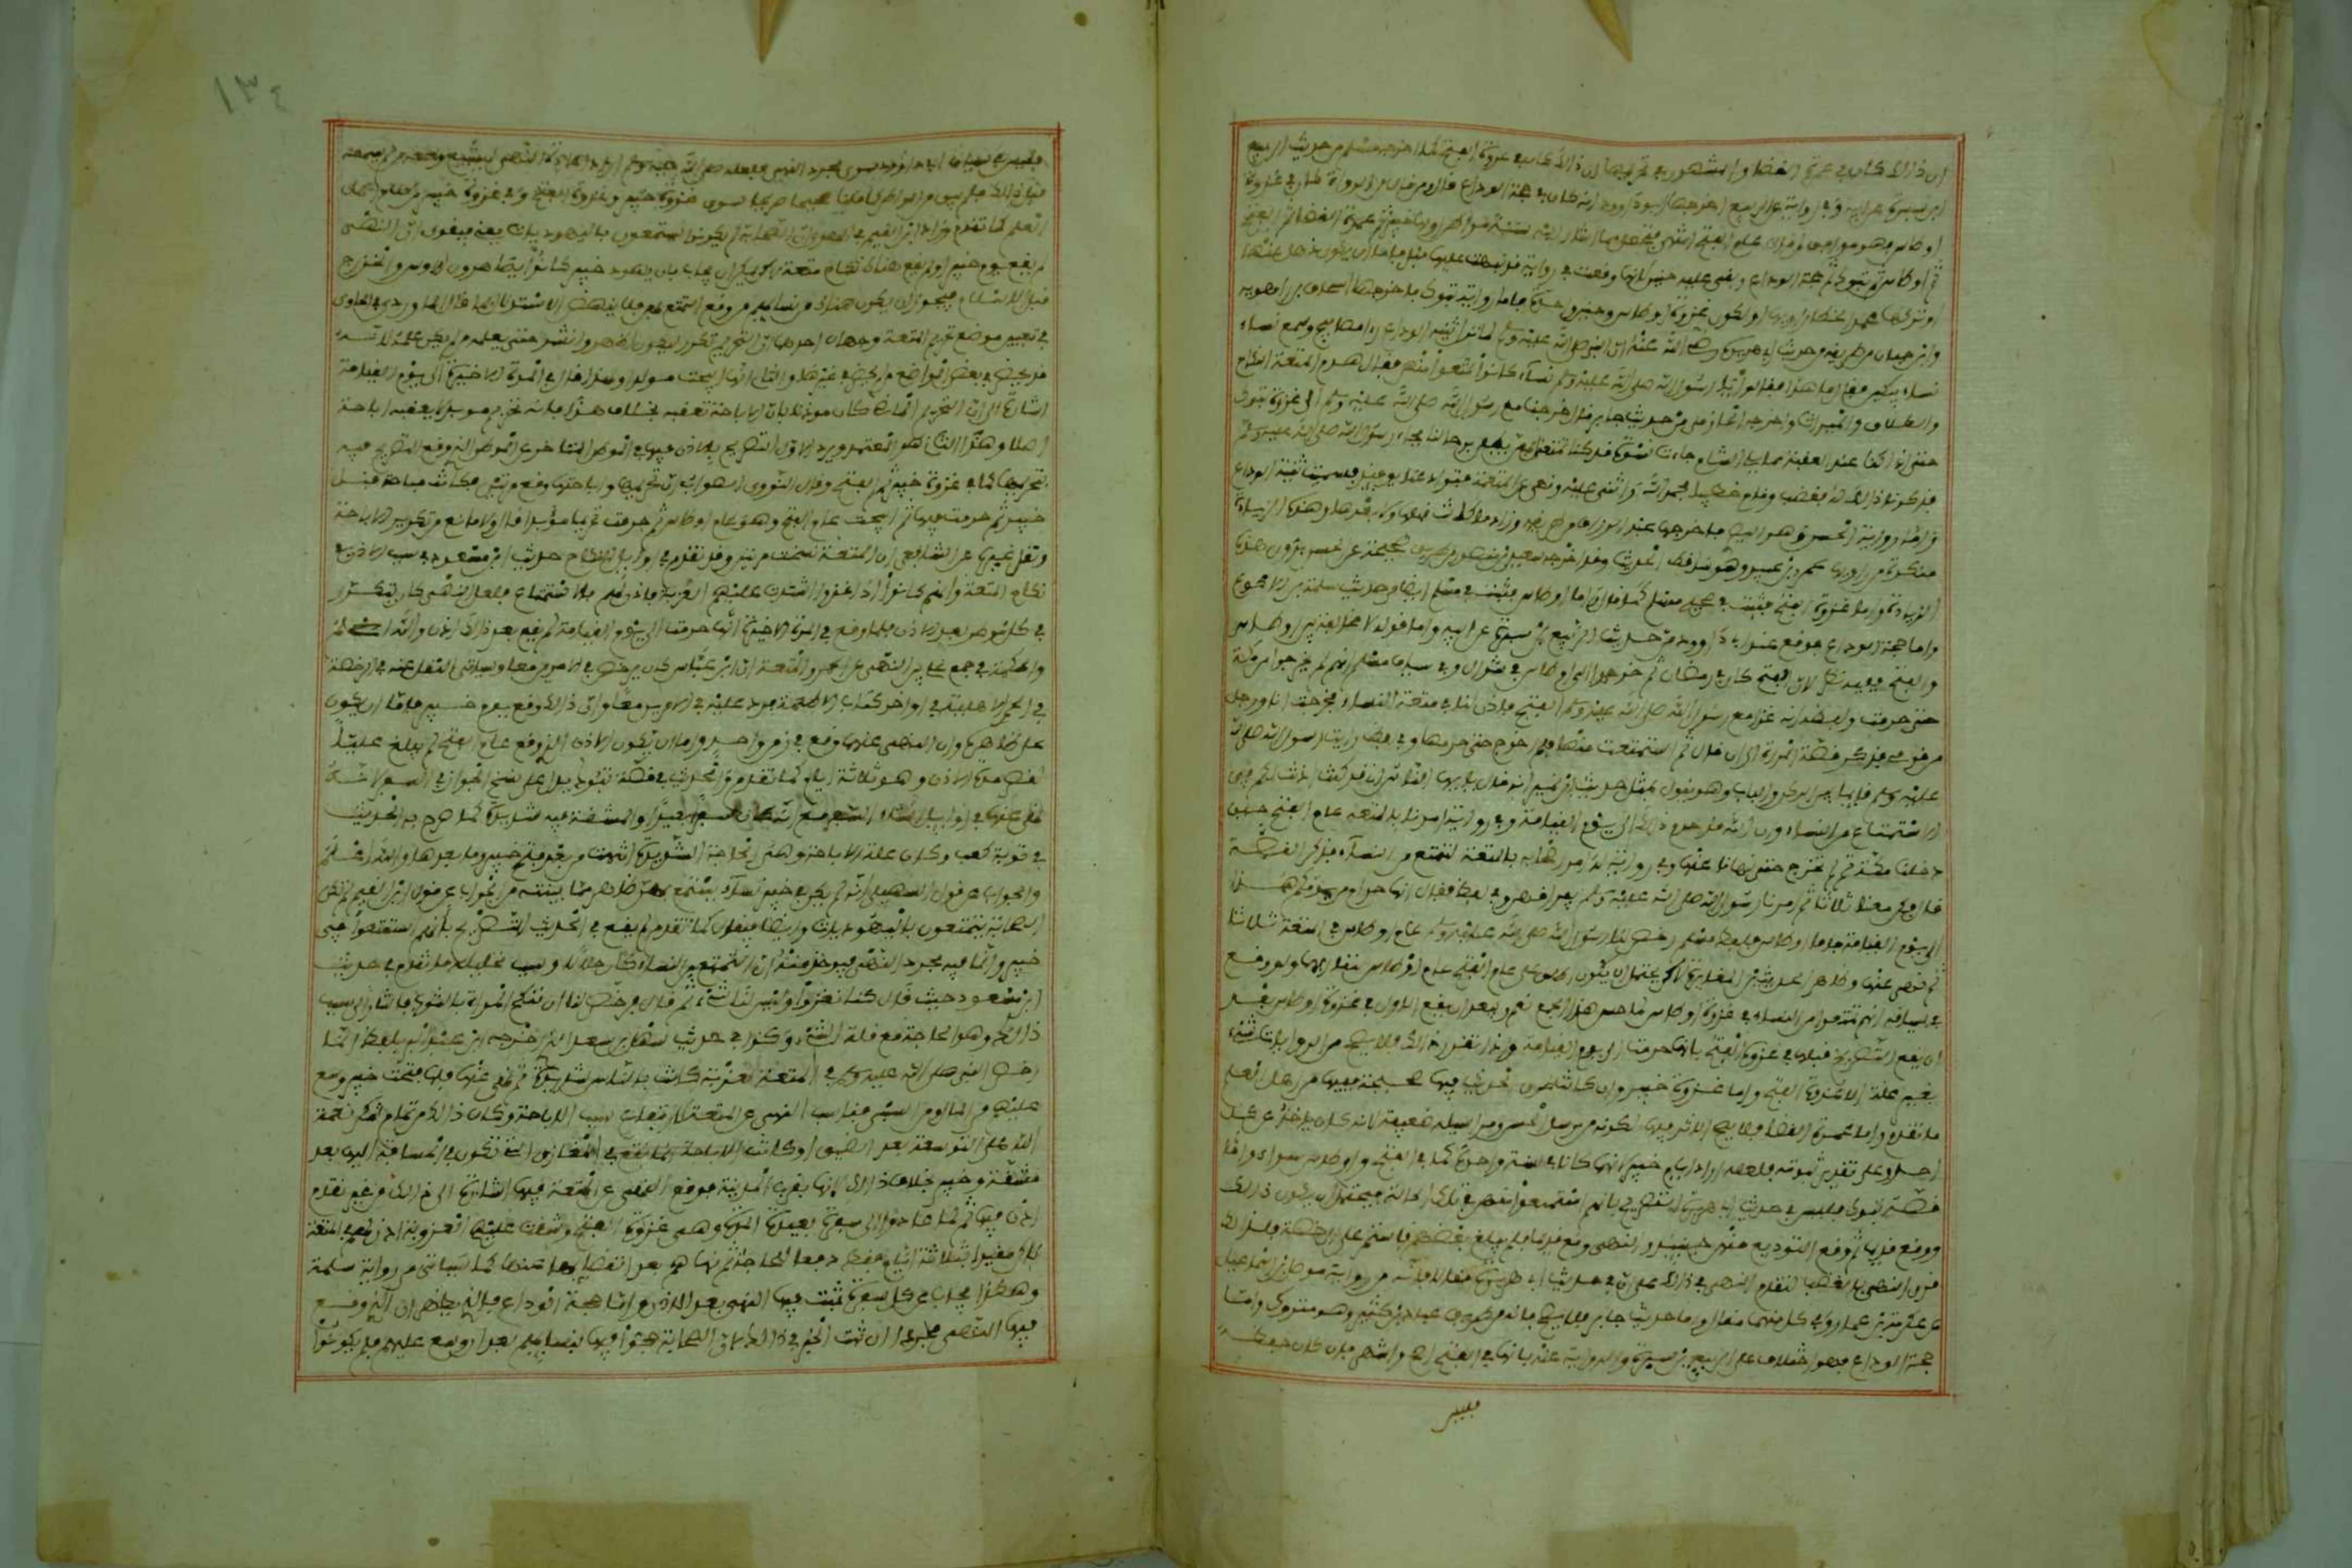 ان ذلك كان في عمرة القضا والمشهور في تحريمها ان ذلك كان في غزوة الفتح كما اخرجه مسلم من حديث الربيع
ابن سبرة عن ابيه وفي رواية عن الربيع اخرجها ابو داوود انه كان في حجة الوداع قال ومن قال من الرواة كان في غزوة
اوطاس فهو موافق لمن قال عام الفتح انتهى فتحصل مما اشار اليه ستة مواطن اولها خيبر ثم عمرة القضا ثم الفتح
ثم اوطاس ثم تبوك ثم حجة الوداع وبقي عليه حنين لانها وقعت في رواية قد نبهت عليها قبل فاما ان يكون ذهل عنها
او تركها عمدا لخطا رواتها او لكون غزوة اوطاس وحنين واحدة فاما رواية تبوك فاخرجها اسحاق بن راهويه
وابن حبان من طريقه من حديث ابي هريرة رضي الله عنه ان النبي صلى الله عليه وسلم لما نزل ثنية الوداع راى مصابيح وسمع نساء
نساء يبكين فقال ما هذا فقالوا يا رسول الله صلى الله عليه وسلم نساء كانوا تمتعوا منهن فقال هدم المتعة النكاح
والطلاق والميراث واخرجه الحازمي من حديث جابر قال خرجنا مع رسول الله صلى الله عليه وسلم الى غزوة تبوك
حتى اذا كنا عند العقبة مما يلي الشام جاءت نسوة قد كنا تمتعنا بهن يطفن برحالنا فجاء رسول الله صلى الله عليه وسلم
فذكرنا ذلك له فغضب وقام خطيبا فحمد الله واثنى عليه ونهى عن المتعة فتوادعنا يومئذ فسميت ثنية الوداع
واما رواية الحسن وهو البصري فاخرجها عبد الرزاق من طريقه وزاد ما كانت قبلها ولا بعدها وهذه الزيادة
منكرة من راويها عمرو بن عبيد وهو ساقط الحديث وقد اخرجه سعيد بن منصور من طريق صحيحة عن الحسن بدون هذه
الزيادة واما غزوة الفتح فثبتت في صحيح مسلم كما قال واما اوطاس فثبتت في مسلم ايضا من حديث سلمة بن الاكوع
واما حجة الوداع فوقع عند ابي داوود من حديث الربيع بن سبرة عن ابيه واما قوله لا مخالفة بين اوطاس
والفتح ففيه نظر لان الفتح كان في رمضان ثم خرجوا الى اوطاس في شوال وفي سياق مسلم انهم لم يخرجوا من مكة
حتى حرمت ولفظه انه غزا مع رسول الله صلى الله عليه وسلم الفتح فاذن لنا في متعة النساء فخرجت انا ورجل
من قومي فذكر قصة المراة الى ان قال ثم استمتعت منها فلم اخرج حتى حرمها وفي لفظ رايت رسول الله صلى الله
عليه وسلم قايما بين الركن والباب وهو يقول بمثل حديث ابن نمير انه قال يايها الناس اني قد كنت اذنت لكم في
الاستمتاع من النساء وان الله قد حرم ذلك الى يوم القيامة وفي رواية امرنا بالمتعة عام الفتح حين
دخلنا مكة ثم لم نخرج حتى نهانا عنها وفي رواية له امر اصحابه بالتمتع من النساء فذكر القصة
قال فكن معنا ثلاثا ثم امرنا رسول الله صلى الله عليه وسلم بفراقهن وفي لفظ فقال انها حرام من يومكم هذا
الى يوم القيامة فاما اوطاس فلفظ مسلم رخص لنا رسول الله صلى الله عليه وسلم عام اوطاس في المتعة ثلاثا
ثم نهى عنها وظاهر الحديثين المغايرة لكن يحتمل ان يكون اطلق على عام الفتح عام اوطاس لتقاربهما ولو وقع
في سياقه انهم تمتعوا من النساء في غزوة اوطاس لما حسن هذا الجمع نعم ويبعد ان يقع الاذن في غزوة اوطاس بعد
ان يقع التصريح قبلها في غزوة الفتح بانها حرمت الى يوم القيامة واذا تقرر ذلك فلا يصح من الروايات شيء
بغير علة الا غزوة الفتح واما غزوة خيبر وان كانت طرق الحديث فيها صحيحة ففيها من كلام اهل العلم
ما تقدم واما عمرة القضا فلا يصح الاثر فيها لكونه من مرسل الحسن ومراسيله ضعيفة لانه كان ياخذ عن كل
احد وعلى تقدير ثبوته فلعله اراد ايام خيبر لانهما كانا في سنة واحدة كما في الفتح واوطاس سواء واما
قصة تبوك فليس في حديث ابي هريرة التصريح بانهم استمتعوا منهن في تلك الحالة فيحتمل ان يكون ذلك
ووقع قديما ثم وقع التوديع منهن حينئذ والنهي وقع قديما فلم يبلغ بعضهم فاستمر على الرخصة فلذلك
قرن النهي بالغضب لتقدم النهي في ذلك على ان في حديث ابي هريرة مقالا فانه من رواية مومل بن اسماعيل
عن عكرمة بن عمار وفي كل منهما مقال واما حديث جابر فلا يصح فانه من طريق عباد بن كثير وهو متروك واما
حجة الوداع فهو اختلاف على الربيع بن سبرة والرواية عنه بانها في الفتح اصح واشهر فان كان حفظه
فليس
١٣٤
فليس في سياق ابي داوود سوى مجرد النهي فلعله صلى الله عليه وسلم اراد اعادة النهي ليشيع ويسمعه من لم يسمعه
قبل ذلك فلم يبق من المواطن كما قلنا صحيحا صريحا سوى غزوة خيبر وغزوة الفتح وفي غزوة خيبر من كلام اهل
العلم ما تقدم وزاد ابن القيم في الهدي ان الصحابة لم يكونوا يستمتعون باليهوديات يعني فيقوى ان النهي
لم يقع يوم خيبر او لم يقع هناك نكاح متعة لكن يمكن ان يجاب بان يهود خيبر كانوا يصاهرون الاوس والخزرج
قبل الاسلام فيجوز ان يكون هناك من نسايهم من وقع التمتع بهن فلا ينهض الاستدلال بما قال الماوردي في الحاوي
في تعيين موضع تحريم المتعة وجهان احدهما ان التحريم تكرر ليكون اظهر وانشر حتى يعلمه من لم يكن علمه لانه
قد يحضر في بعض المواضع من لا يحضر في غيرها والثاني انها ابيحت مرارا ولهذا قال في المرة الاخيرة الى يوم القيامة
اشارة الى ان التحريم الماضي كان موذنا بان الاباحة تعقبه بخلاف هذا فانه تحريم موبد لا يعقبه اباحة
اصلا وهذا الثاني هو المعتمد ويرد الاول التصريح بالاذن فيها في الموطن المتاخر عن الموطن الذي وقع التصريح فيه
بتحريمها كما في غزوة خيبر ثم الفتح وقال النووي الصواب ان تحريمها واباحتها وقع مرتين فكانت مباحة قبل
خيبر ثم حرمت فيها ثم ابيحت عام الفتح وهو عام اوطاس ثم حرمت تحريما موبدا قال ولا مانع من تكرير الاباحة
ونقل غيره عن الشافعي ان المتعة نسخت مرتين وقد تقدم في اوايل النكاح حديث ابن مسعود في سبب الاذن في
نكاح المتعة وانهم كانوا اذا غزوا اشتدت عليهم العزبة فاذن لهم في الاستمتاع فلعل النهي كان يتكرر
في كل موطن بعد الاذن فلما وقع في المرة الاخيرة انها حرمت الى يوم القيامة لم يقع بعد ذلك اذن والله اعلم
والحكمة في جمع علي بين النهي عن الحمر والمتعة ان ابن عباس كان يرخص في الامرين معا وسياتي النقل عنه في الرخصة
في الحمر الاهلية في اواخر كتاب الاطعمة فرد عليه في الامرين معا وان ذلك وقع يوم خيبر فاما ان يكون
على ظاهره وان النهي عنهما وقع في زمن واحد واما ان يكون الاذن الذي وقع عام الفتح لم يبلغ عليا
لقصر مدة الاذن وهو ثلاثة ايام كما تقدم والحديث في قصة تبوك يدل على نسخ الجواز في السفر لانه
نهى عنها في اوايل انشاء السفر مع انه كان سفرا بعيدا والمشقة فيه شديدة كما صرح به الحديث
في توبة كعب وكان علة الاباحة وهي الحاجة الشديدة انتهت من بعد فتح خيبر وما بعدها والله اعلم
والجواب عن قول السهيلي انه لم يكن في خيبر نساء يستمتع بهن ظاهر مما بينته من الجواب عن قول ابن القيم لم تكن
الصحابة يتمتعون باليهوديات وايضا فيقال كما تقدم لم يقع في الحديث التصريح بانهم استمتعوا في
خيبر وانما فيه مجرد النهي فيوخذ منه ان التمتع من النساء كان حلالا وسبب تحليله ما تقدم في حديث
ابن مسعود حيث قال كنا نغزوا وليس لنا شيء ثم قال فرخص لنا ان ننكح المراة بالثوب فاشار الى سبب
ذلك وهو الحاجة مع قلة الشيء وكذا في حديث سهل بن سعد الذي اخرجه ابن عبد البر بلفظ انما
رخص النبي صلى الله عليه وسلم في المتعة لعزبة كانت بالناس شديدة ثم نهى عنها فلما فتحت خيبر وسع
عليهم من المال ومن السبي فناسب النهي عن المتعة لارتفاع سبب الاباحة وكان ذلك من تمام شكر نعمة
الله على التوسعة بعد الضيق او كانت الاباحة انما تقع في المغازي التي تكون في المسافة اليها بعد
مشقة وخيبر بخلاف ذلك لانها بقرب المدينة فوقع النهي عن المتعة فيها اشارة الى ذلك من غير تقدم
اذن فيها ثم لما عادوا الى سفرة بعيدة المدة وهي غزوة الفتح وشقت عليهم العزوبة اذن لهم في المتعة
لكن مقيدا بثلاثة ايام فقط دفعا للحاجة ثم نهاهم بعد انقضايها عنها كما سياتي من رواية سلمة
وهكذا يجاب عن كل سفرة ثبت فيها النهي بعد الاذن واما حجة الوداع فالذي يظهر ان الذي وقع
فيها النهي مجردا ان ثبت الخبر في ذلك لان الصحابة حجوا فيها بنسايهم بعد ان وسع عليهم فلم يكونوا